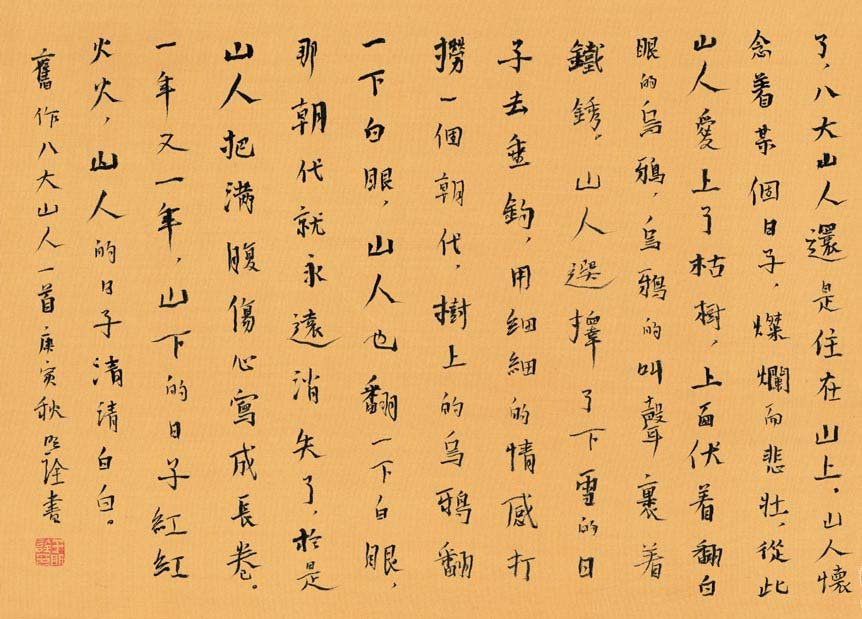 了，八大山人還是住在山上。山人懷
念着某個日子，燦爛而悲壯，從此
山人愛上了枯樹，上面伏着翻白
眼的烏鴉，烏鴉的叫聲裹着
鐵銹。山人選擇了下雪的日
子去垂釣，用細細的情感打
撈一個朝代，樹上的烏鴉翻
一下白眼，山人也翻一下白眼，
那朝代就永遠消失了，於是
山人把滿腹傷心寫成長卷。
一年又一年，山下的日子紅紅
火火，山人的日子清清白白。
舊作八大山人一首庚寅秋明詮書